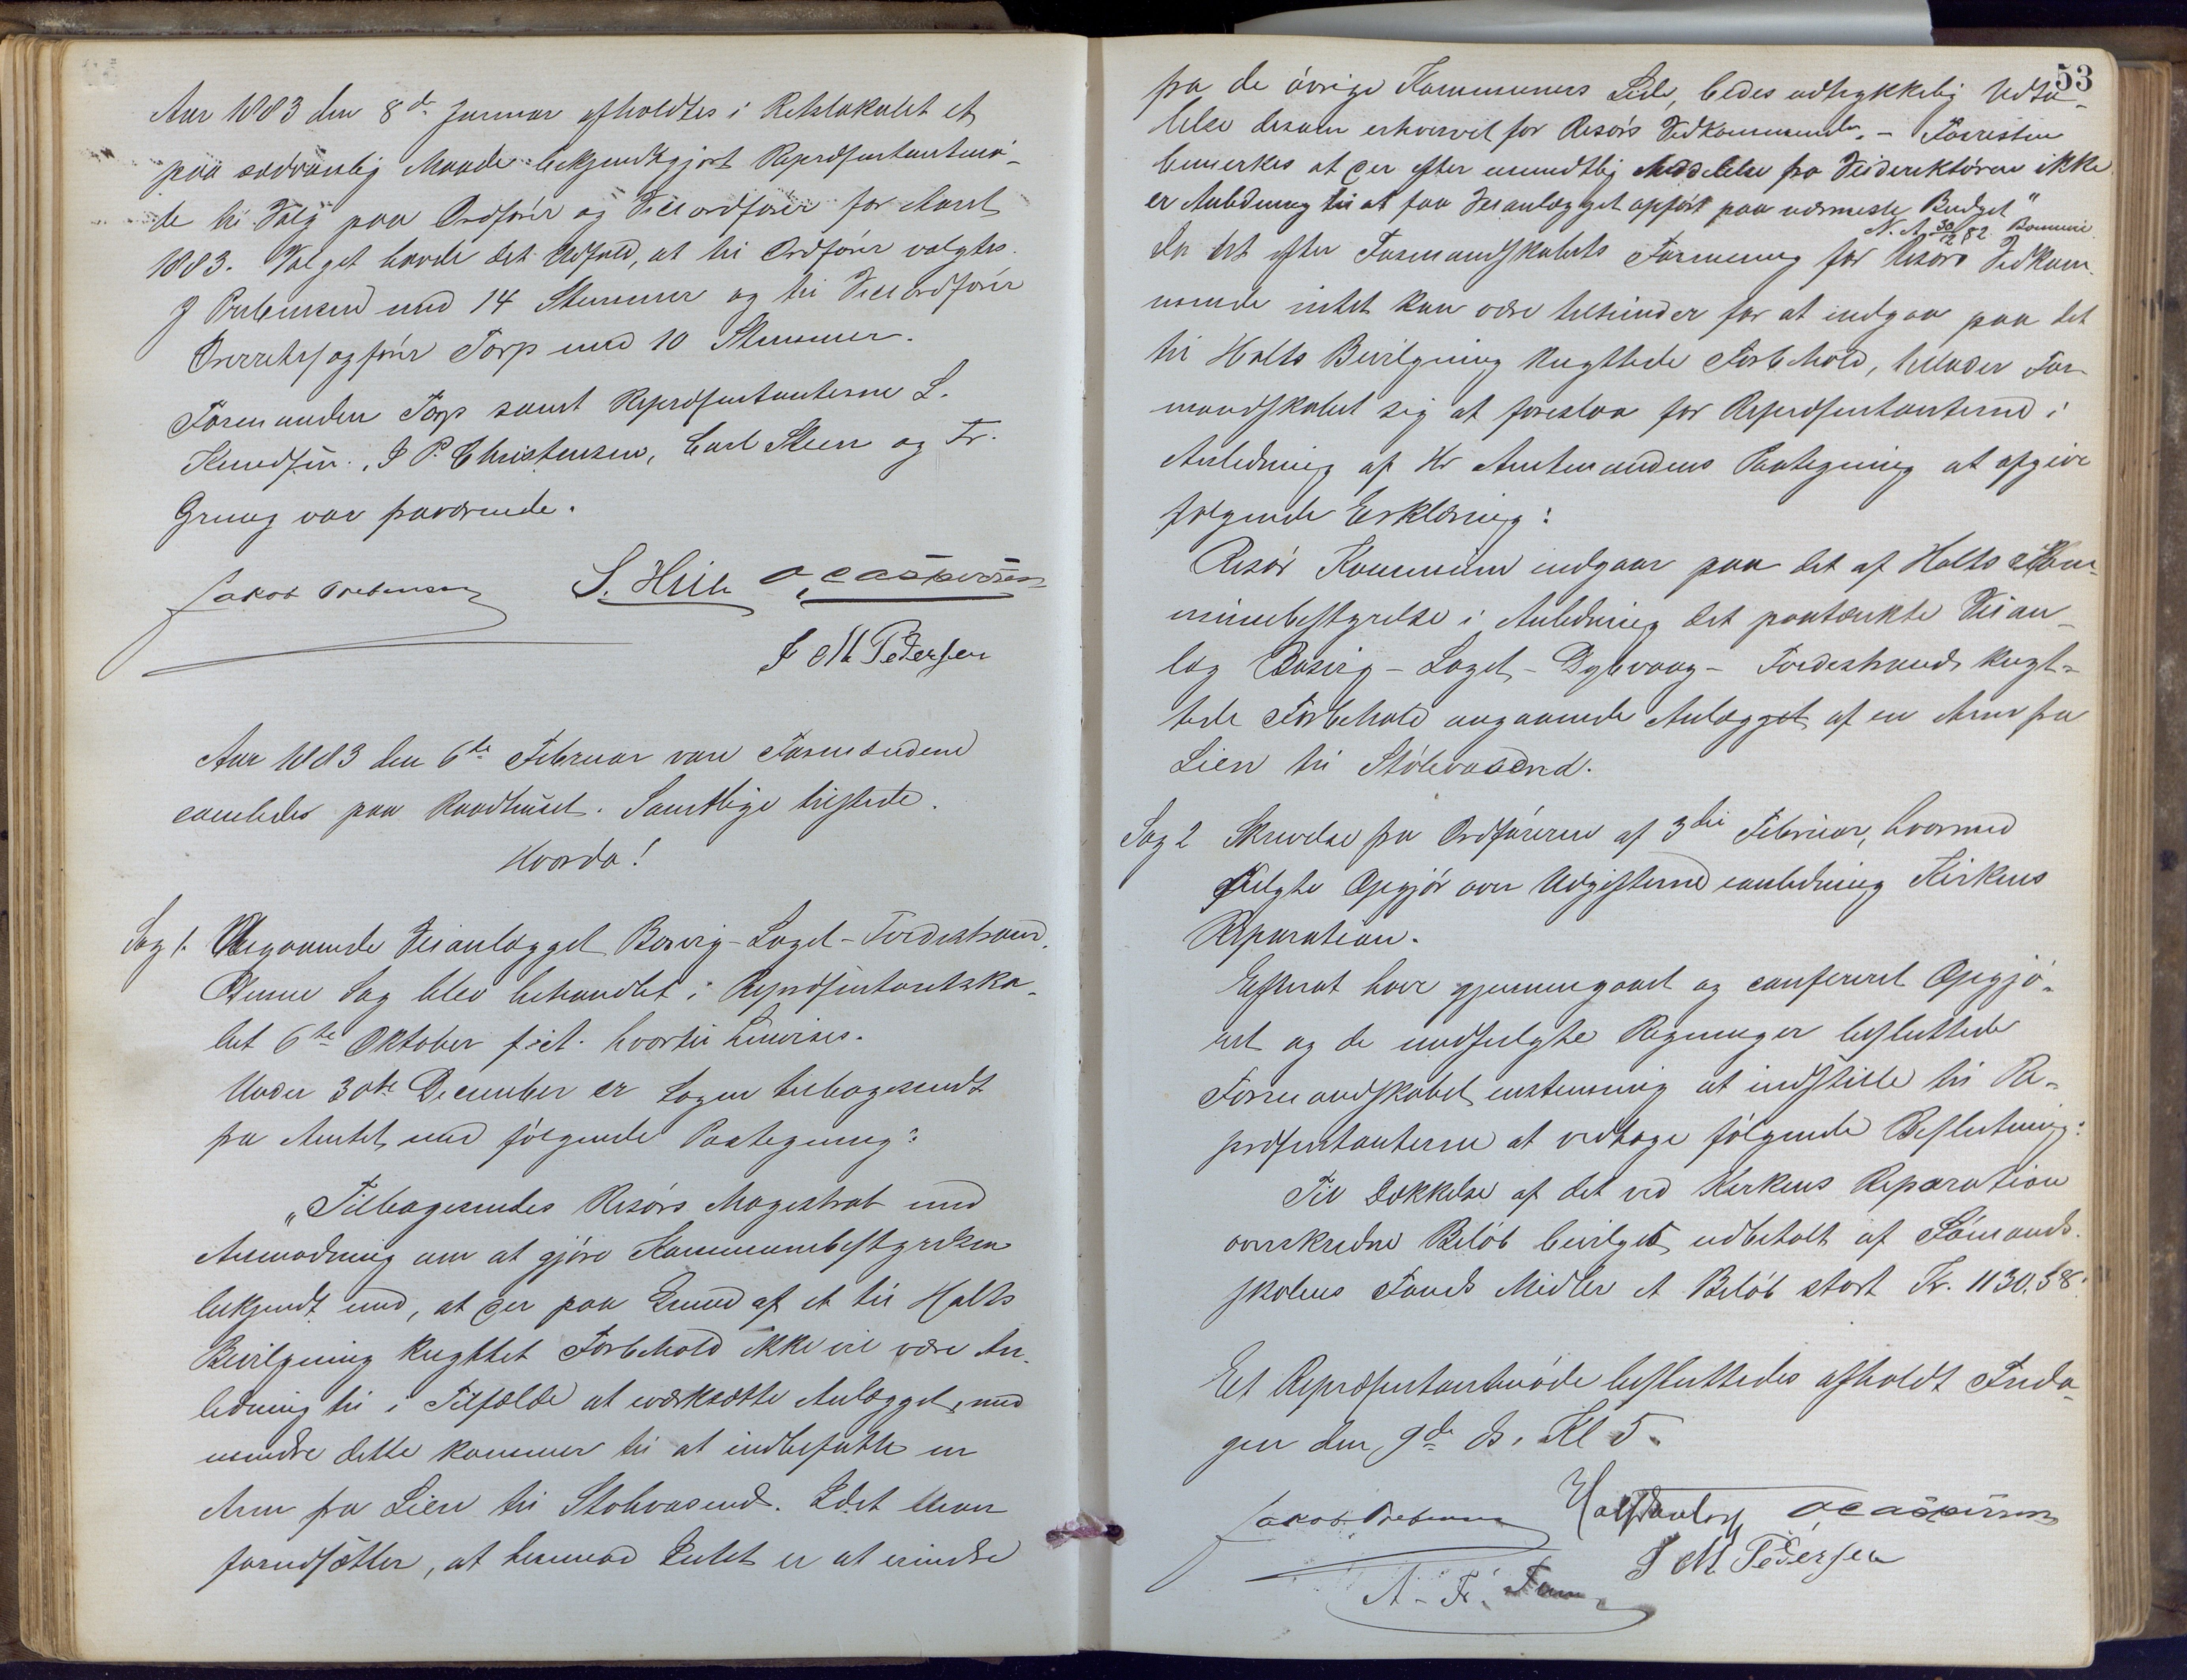 Aar 1883 den 8de Januar afholdtes i Retslokalet et
paa sædvanlig Maade bekjendtgjort Repræsentantmö-
de til Valg paa Ordförer og Viceordförer for Aaret
1883. Valget havde det Udfald, at til Ordförer valgtes
J Prebensen med 14 Stemmer og til Viceordförer
Overretssagförer Torp med 10 Stemmer.
Formanden Torp samt Repræsentanterne L.
Knudsen, J P. Christensen, Carl Steen og Fr.
Grung var fraværende.
Jakob Prebensen S. Hille O, Caspersen
J M Pedersen
Aar 1883 den 6te Februar vare Formændene
samlede paa Raadhuset. Samtlige tilstede.
Hvorda!
Sag 1. Angaaende Veianlægget Bosvig-Laget-Tvedestrand.
Denne Sag blev behandlet i Repræsentantska-
bet 6te Oktober f. A. hvortil henvises.
Under 30te December er Sagen tilbagesendt
fra Amtet med fölgende Paategning:
„Tilbagesendes Risörs Magistrat med
Anmodning om at gjöre Kommunebestyrelsen
bekjendt med, at der paa Grund af et til Holts
Bevilgning knyttet Forbehold ikke vil være An-
ledning til i Tilfælde at iværksætte Anlægget, med
mindre dette kommer til at indbefatte en
Arm fra Lien til Stölevasend. Idet man
forudsætter, at hermod Intet er at erindre
53
fra de övrige Kommuners Side, bedes udtrykkelig Udta-
lelse desom erhvervet for Risörs Vedkommende. – Forresten
bemerkes at der efter mundtlig Meddelelse fra Veidirektören ikke
er Anledning til at faa Veianlægget opfört paa nærmeste Budget"
N. A. 30/12 82.
Da det efter Formandskabets Formening for Risörs Vedkom-
mende intet kan være tilhinder for at indgaa paa det
til Holts Bevilgning knyttede Forbehold, tillader For-
mandskabet sig at foreslaa for Repræsentanterne i
Anledning af Hr Amtmandens Paategning at afgive
fölgende Erklæring:
Risör Kommune indgaar paa det af Holts Kom-
munebestyrelse i Anledning det paatænkte Veian-
læg Bosvig-Laget-Dybvaag-Tvedestrand knyt-
tede Forbehold angaaende Anlægget af en Arm fra
Lien til Stölevasend.
Sag 2 Skrivelse fra Ordföreren af 3die Februar, hvormed
fulgte Opgjör over Udgifterne i anledning Kirkens
Reparation.
Efterat have gjennemgaaet og confereret Opgjö-
ret og de medfulgte Regninger besluttede
Formandskabet enstemmig at indstille til Re-
præsentanterne at vedtage fölgende Beslutning:
Til Dækkelse af det ved Kirkens Reparation
overskredne Belöb bevilges udbetalt af Sömands-
skolens Fonds Midler et Belöb stort Kr. 1130.58.
Et Repræsentantmöde besluttedes afholdt Freda-
gen den 9de ds. Kl 5.
Jakob Prebensen O Caspersen
J M Pedersen